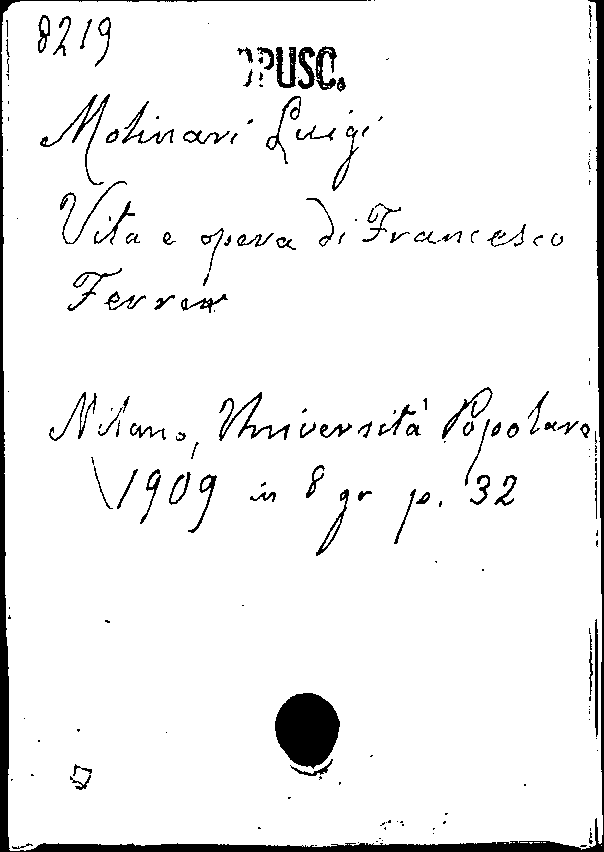 8219
OPUSC.
Molinari Luigi
Vita e opera di Francesco
Ferrer
Milano, Università Popolare
1909 in 8 gr p. 32